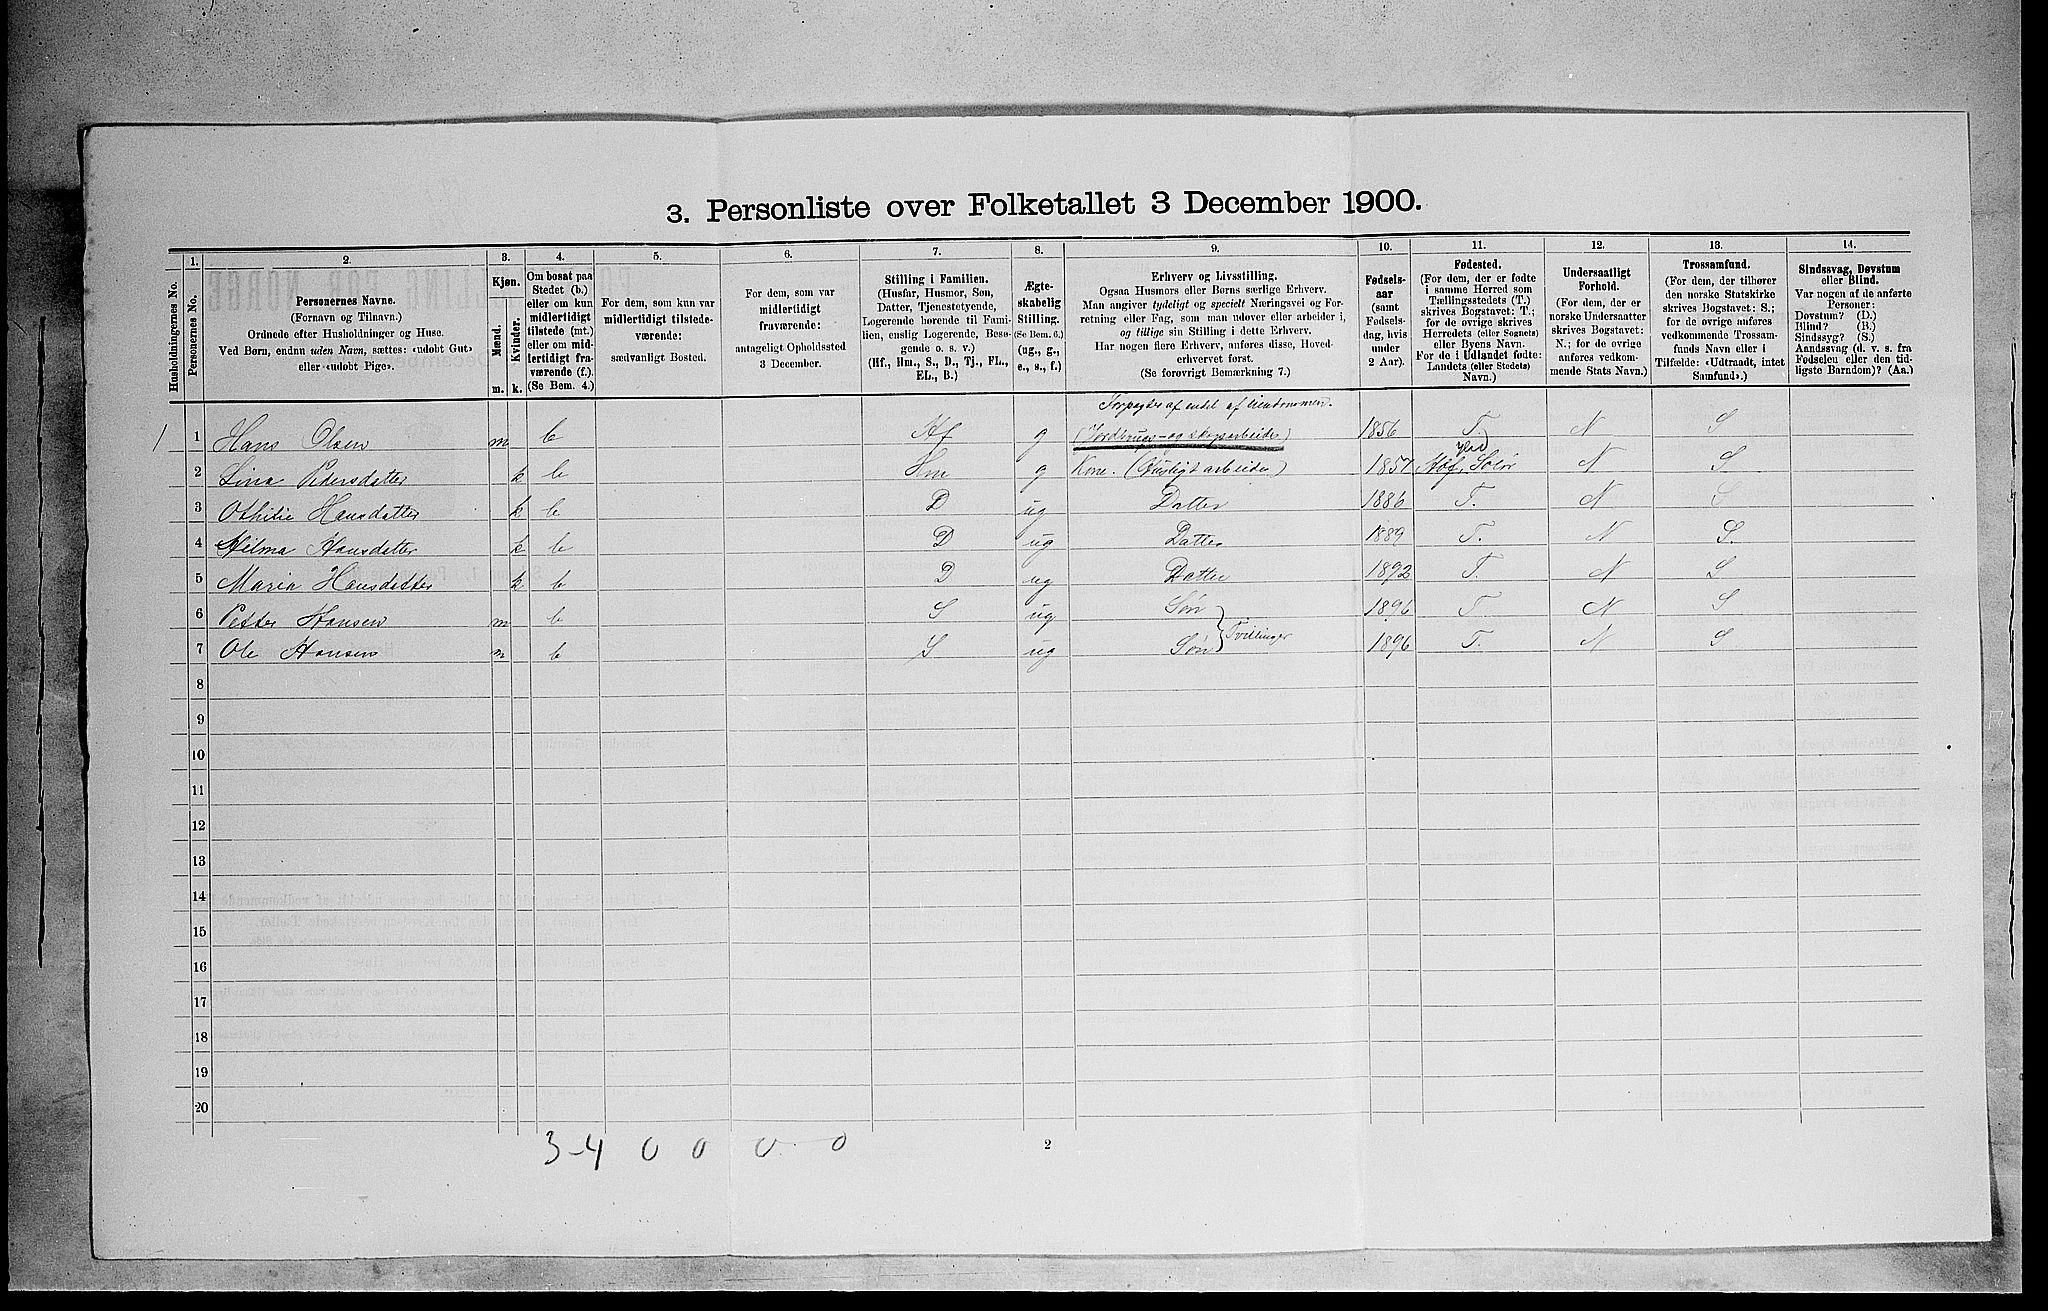 3. Personliste over Folketallet 3 December 1900.
1. 2. 3. 4. 5. 6. 7. 8. 9. 10. 11. 12. 13. 14.
Husholdningernes No.
Personernes No.
Personernes Navne.
(Fornavn og Tilnavn.)
Ordnede efter Husholdninger og Huse.
Ved Børn, endnu uden Navn, sættes: «udøbt Gut»
eller «udøbt Pige».
Kjøn.
Mænd. Kvinder.
m. k.
Om bosat paa
Stedet (b.)
eller om kun
midlertidigt
tilstede (mt.)
eller om mid-
lertidigt fra-
værende (f.).
(Se Bem. 4.)
For dem, som kun var
midlertidigt tilstede-
værende:
sædvanligt Bosted.
For dem, som var
midlertidigt
fraværende:
antageligt Opholdssted
3 December.
Stilling i Familien.
(Husfar, Husmor, Søn,
Datter, Tjenestetyende,
Logerende hørende til Fami-
lien, enslig Logerende, Besø-
gende o. s. v.)
(Hf., Hm., S., D., Tj., FL.,
EL., B.)
Ægte-
skabelig
Stilling.
(Se Bem. 6.)
(ug., g.,
e., s., f.)
Erhverv og Livsstilling.
Ogsaa Husmors eller Børns særlige Erhverv.
Man angiver tydeligt og specielt Næringsvei og For-
retning eller Fag, som man udøver eller arbeider i,
og tillige sin Stilling i dette Erhverv.
Har nogen flere Erhverv, anføres disse, Hoved-
erhvervet først.
(Se forøvrigt Bemærkning 7.)
Fødsels-
aar
(samt
Fødsels-
dag, hvis
under
2 Aar).
Fødested.
(For dem, der er fødte
i samme Herred som
Tællingsstedets (T.)
skrives Bogstavet: T.;
for de øvrige skrives
Herredets (eller Sognets)
eller Byens Navn.
For de i Udlandet fødte:
Landets (eller Stedets)
Navn.)
Undersaatligt
Forhold.
(For dem, der er
norske Undersaatter
skrives Bogstavet:
N.; for de øvrige
anføres vedkom-
mende Stats Navn.)
Trossamfund.
(For dem, der tilhører
den norske Statskirke
skrives Bogstavet: S.;
for de øvrige anføres
vedkommende Trossam-
funds Navn eller i
Tilfælde: «Udtraadt, intet
Samfund».)
Sindssvag, Døvstum
eller Blind.
Var nogen af de anførte
Personer:
Døvstum? (D.)
Blind? (B.)
Sindssyg? (S.)
Aandssvag (d. v. s. fra
Fødselen eller den tid-
ligste Barndom)? (Aa.)
Forpagter af endel af eiendommen.
1 1 Hans Olsen m b Hf g (Jordbrugs- og skogsarbeider) 1856 T. N S
2 Lina Pedersdatter k b Hm g Kone. (Husligt arbeide) 1857 Hof, Solør N S
3 Othilie Hansdatter k b D ug Datter 1886 T. N S
4 Hilma Hansdatter k b D ug Datter 1889 T. N S
5 Maria Hansdatter k b D ug Datter 1892 T. N S
6 Petter Hansen m b S ug Søn 1896 T. N S
Tvillinger
7 Ole Hansen m b S ug Søn 1896 T. N S
8
9
10
11
12
13
14
15
16
17
18
19
20
3-4 0 0 0 0
2